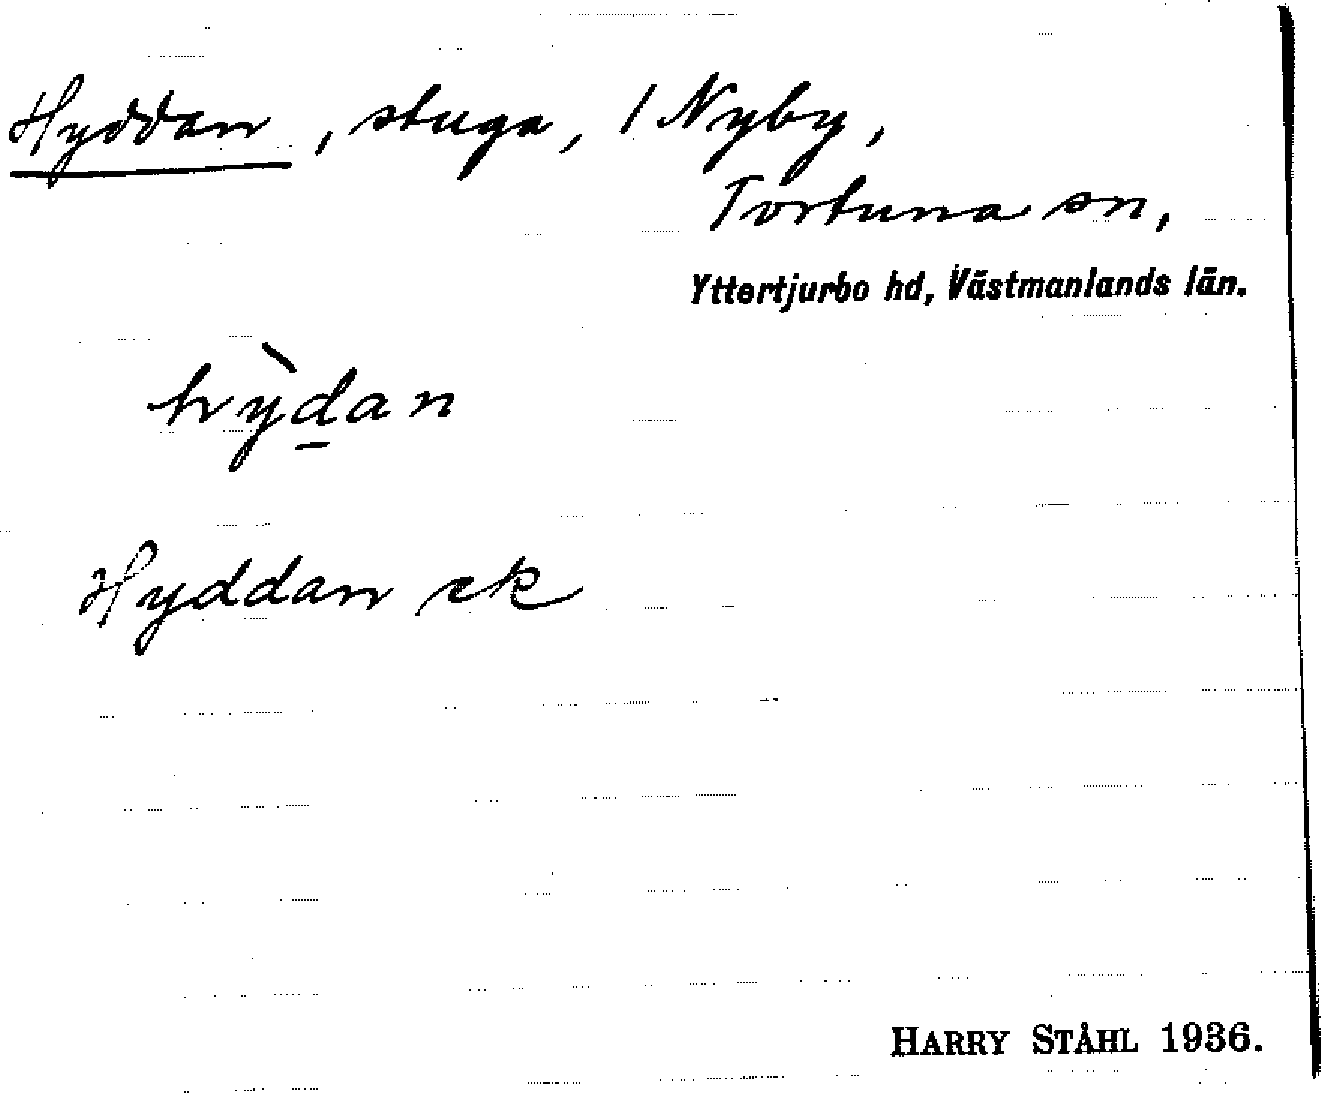 Hyddan, stuga, 1 Nyby,
Tortuna sn,
Yttertjurbo hd, Västmanlands län.
hỳd̲an
Hyddan ek
HARRY STÅHL 1936.